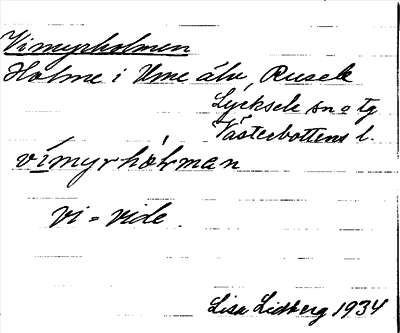 Vimyrholmen
Holme i Ume älv, Rusele
Lycksele sn o tg
Västerbottens l.
vímyrhòlman
vi = vide
Lisa Lidberg 1934